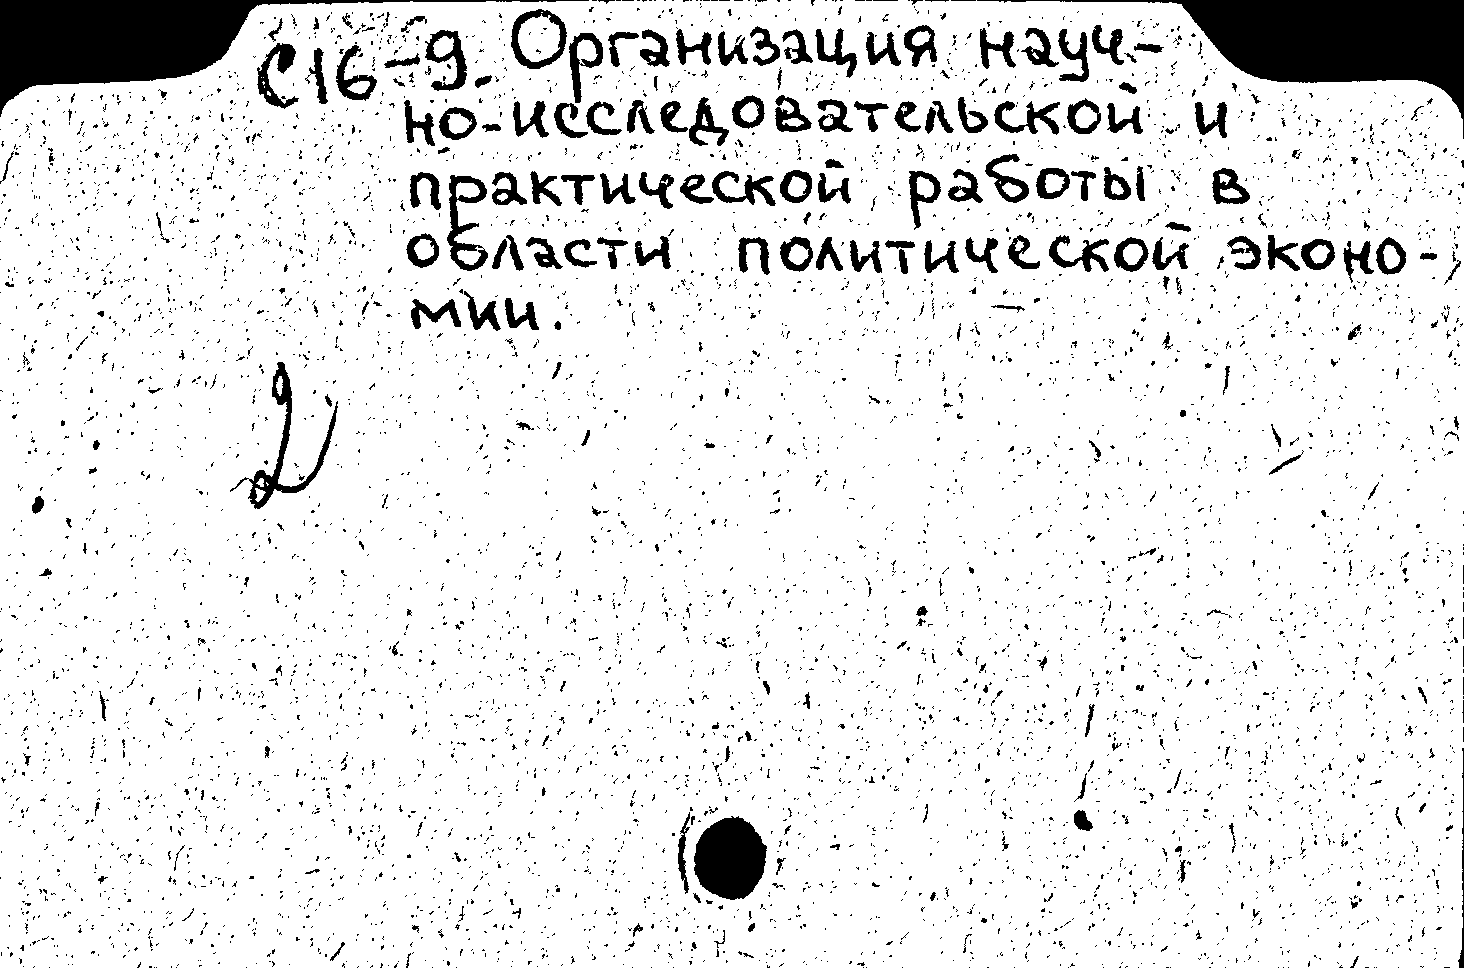 С16-9. Организация науч-
но-исследовательской и
практической работы в
области политической эконо-
мии.